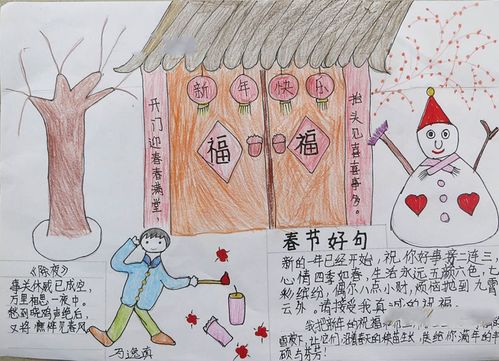 新年快乐
开门迎春春满堂，
抬头见喜喜事多。
福
福
《除夜》
事关休戚已成空，
万里相思一夜中。
愁到晓鸡声绝后，
又将憔悴见春风
春节好句
新的一年已经开始，祝你好事接二连三，
心情四季如春，生活永远五颜六色，七
彩缤纷，偶尔八点小财，烦恼抛到九霄
云外。请接受我真 成的祝福
我把新年的祝福
雨露下，让它们沿着
送给你满年的丰
硕与芬芳！